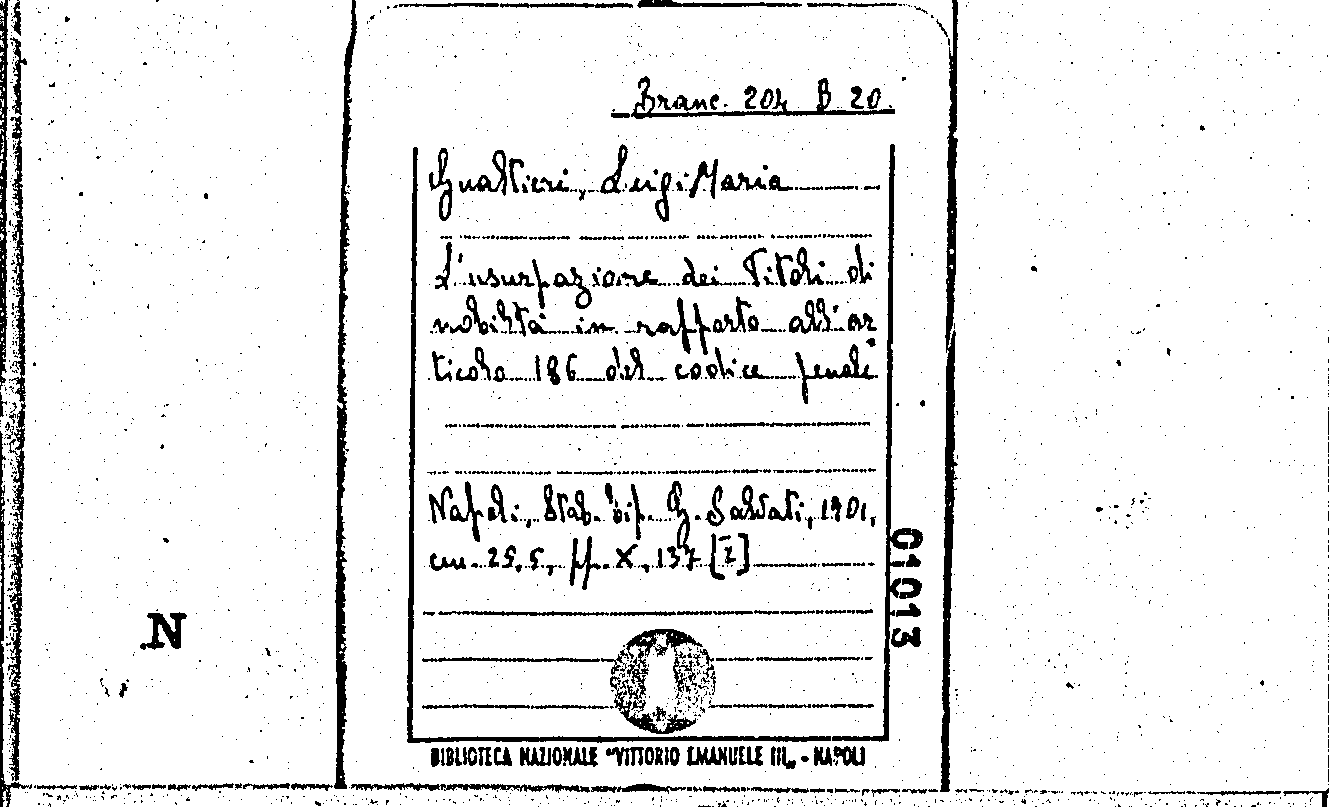 Branc. 204 B 20.
Gualtieri, Luigi Maria
L'usurpazione dei Titoli di
nobiltà in rapporto all'ar
ticolo 186 del codice penale
Napoli, Stab. Tip. G. Salvati, 1901,
cm. 25,5, pp. X, 137 [I]
01013
N
BIBLIOTECA NAZIONALE "VITTORIO EMANUELE III„ - NAPOLI